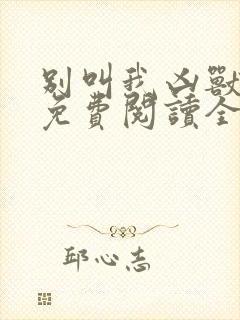 别叫我凶獸
免費閱讀全
邱心志